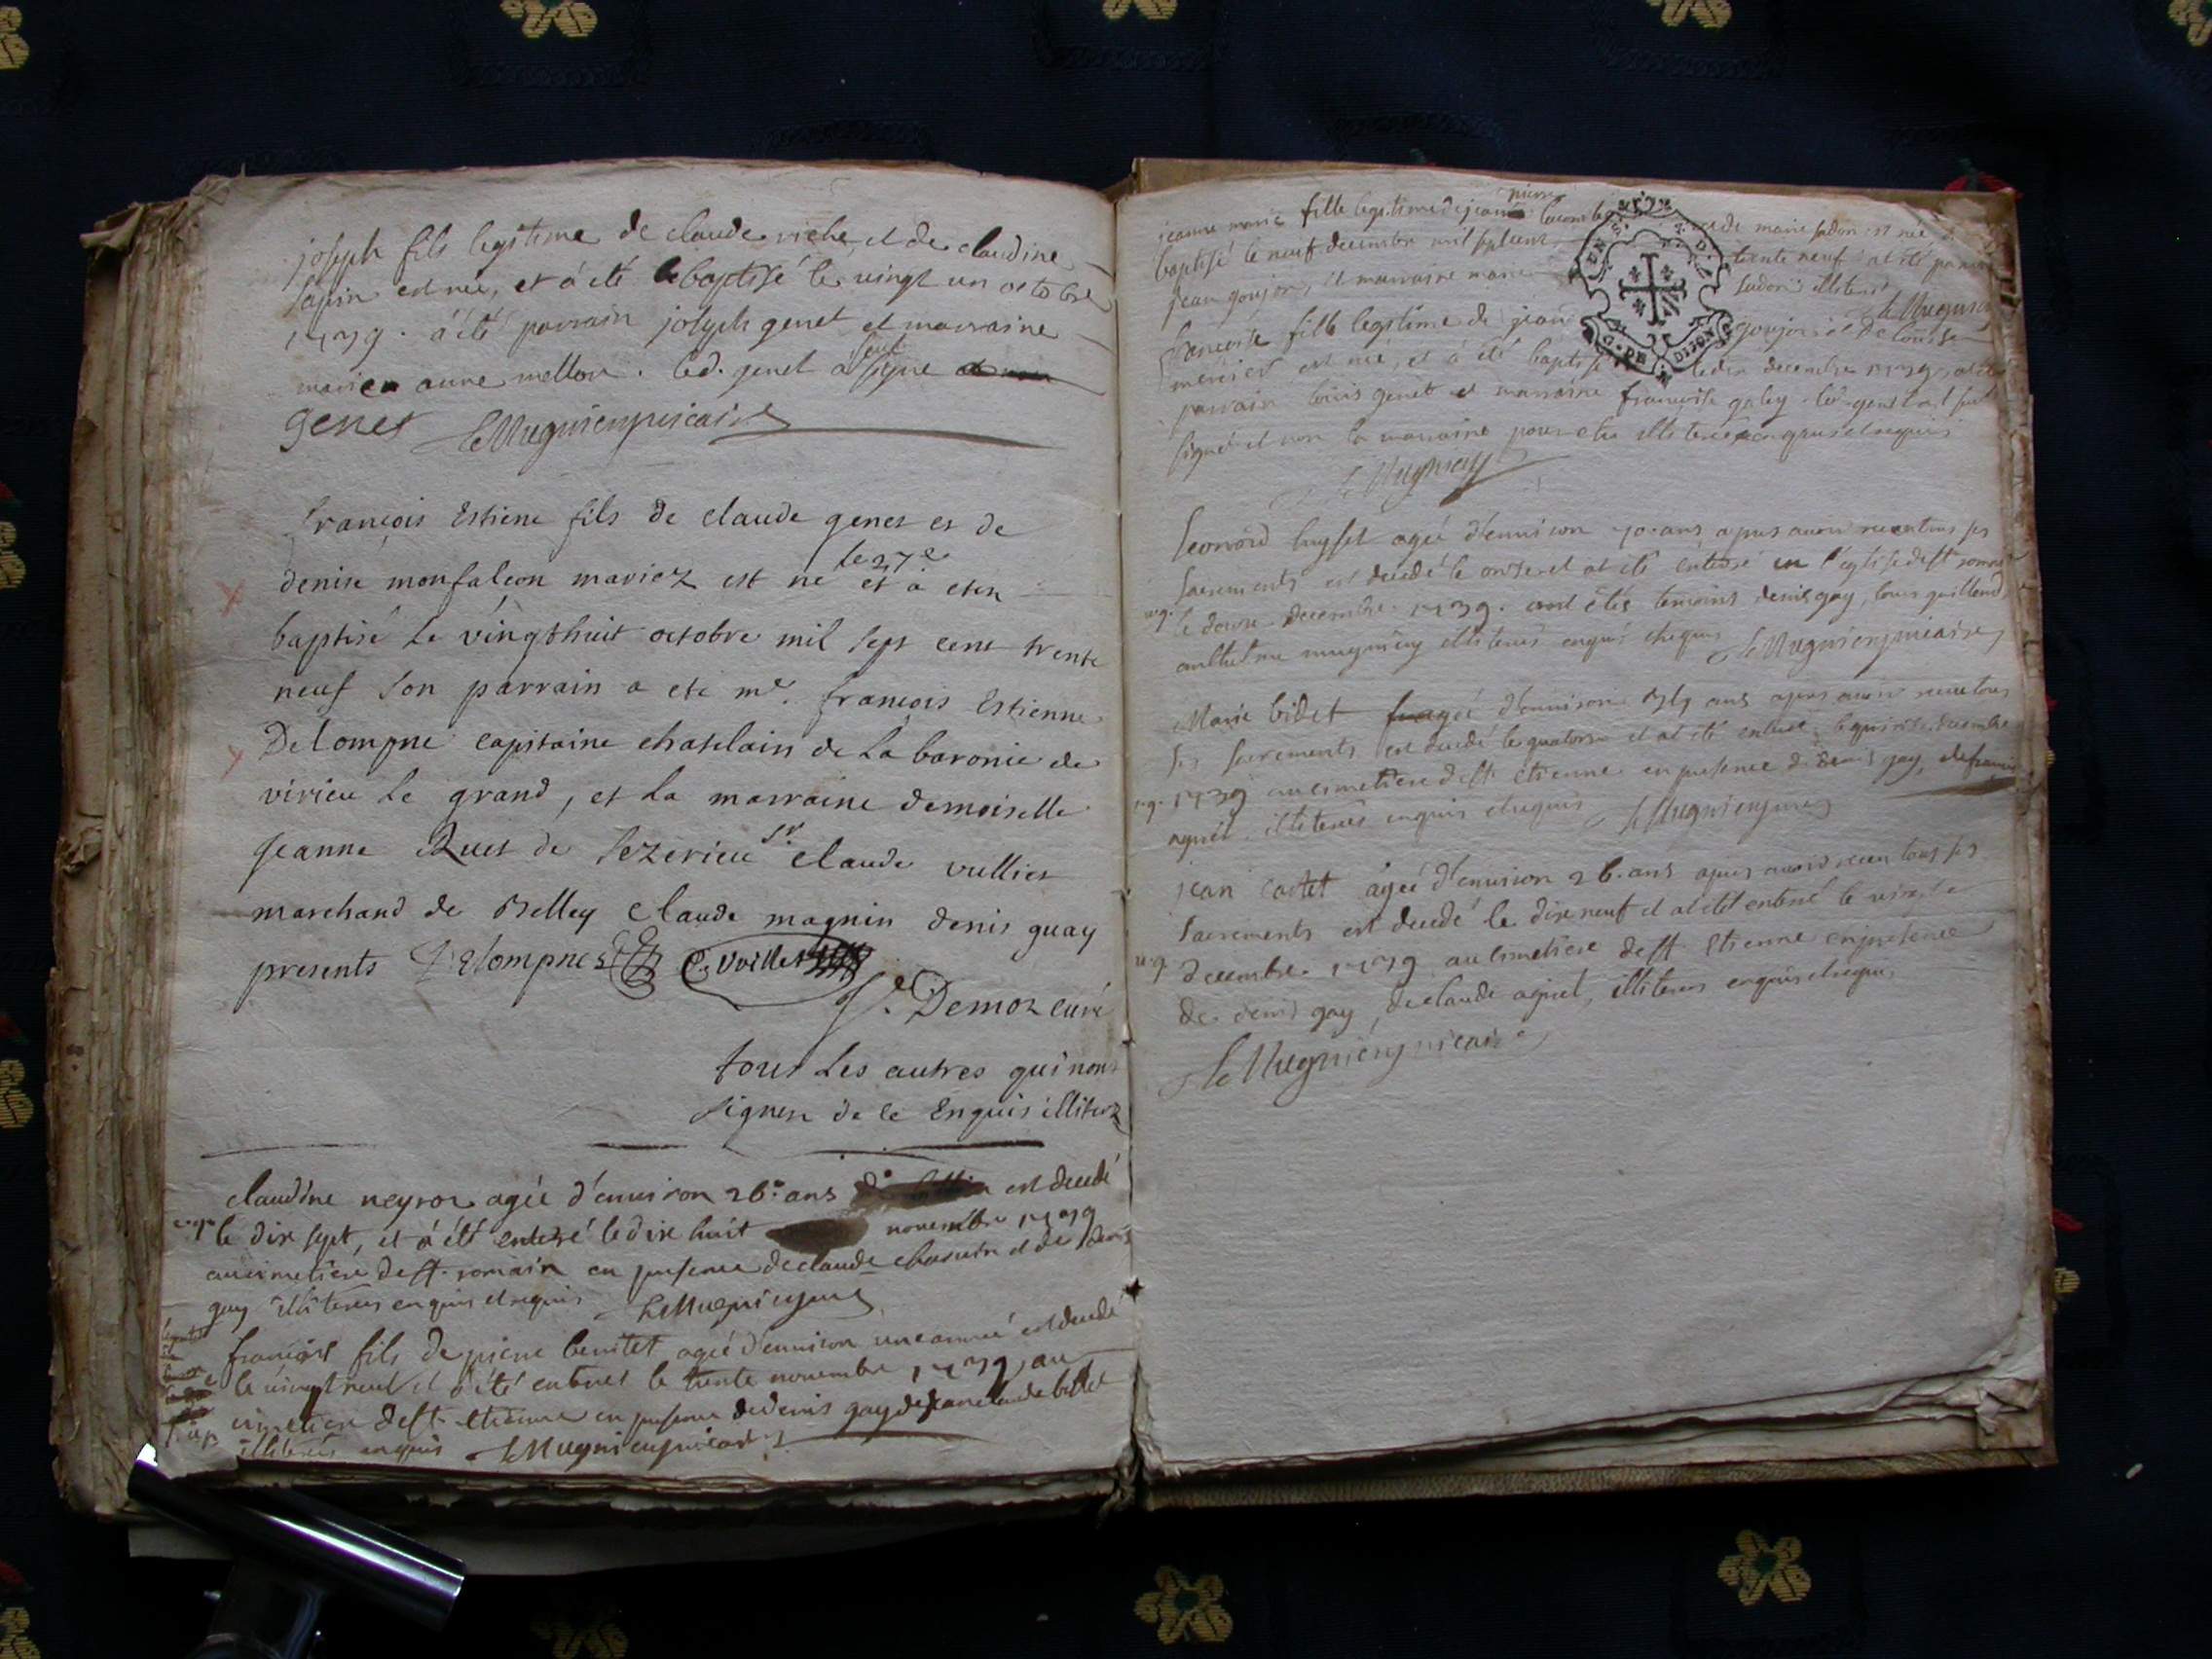 joseph fils legitime de claude riche et de claudine
sapin est née, et á eté baptisé le vingt un octobre
1739. á été parrain joseph genet et marraine
marie anne mellon. led. genet a seul signé
genet Le Mugnier vicaire
françois Estiene fils de claude genet et de
denise monfalcon mariez est né le 27e et a eten
baptisé le vingthuit octobre mil sept cent trente
neuf son parrain a eté me. françois Estienne
Delompne capitaine chatelain de la baronie de
virieu le grand, et la marraine demoiselle
jeanne de sezerieu sr. claude vullier
marchand de Belley claude magnin denis guay
presents Delompnes C. Vuillet
Demoz curé
tous les autres qui nont
signer de ce Enquis illiterez
claudine neyroz agée d'environ 26. ans est decedé
le dix sept, et á été enterré le dix huit novembre 1739
au cimetiere de st. romain en presence de claude et de denis
guy illiteres enquis et requis Le Mugnier
françois fils de pierre benitet agée d'environ une année est decedé
le vingt neuf et á été enterré le trente novembre 1739, au
cimetiere de st. etienne en presence de denis gay de jean claude
illiteres enquis Le Mugnier vicaire
jeanne marie fille legitime de jean pierre marie sudon est née et
baptisé le neuf decembre mil sept cent trente neuf at été parrain
jean goujon, et marraine marie sudon illiteres
Le Mugnier
francoise fille legitime de jean goujon et de louise
mercier est née, et á été baptisé le dix decembre 1739, at été
parrain louis genet et marraine françoise genet at seul
signé et non la marraine pour etre illiteree enquis et requis
Le Mugnier
Leonord agée d'environ 70. ans apres avoir receu tous ses
sacrements est decedé le onze et at eté enterré en l'eglise de st romain
le douze decembre 1739. ont étés temoins denis gay, louis
anthelme mugnier illiteres enquis et requis Le Mugnier vicaire
Marie bidet agée d'environ ans apres avoir receu tous
ses sacrements est decedé le quatorze et at été enterré le quinze decembre
1739 au cimetiere de st etienne en presence de denis gay,
agniel illiteres enquis et requis Le Mugnier
jean cartet âgée d'environ 26. ans apres avoir receu tous ses
sacrements est decedé le dix neuf et at été enterré le vingt
decembre 1739 au cimetiere de st Etienne en presence
de denis gay, de claude agniel, illiteres enquis et requis
Le Mugnier vicaire
G. DE DIJON